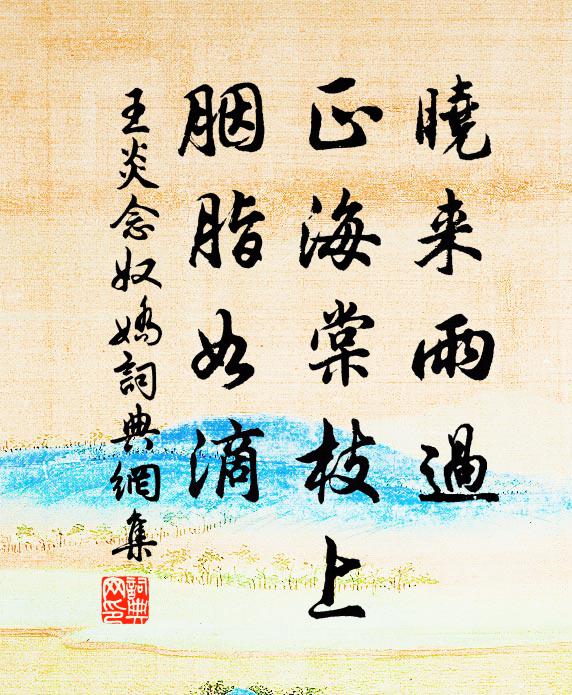 曉来雨過
正海棠枝上
胭脂如滴
王炎念奴嬌詞典網集
詞典網印